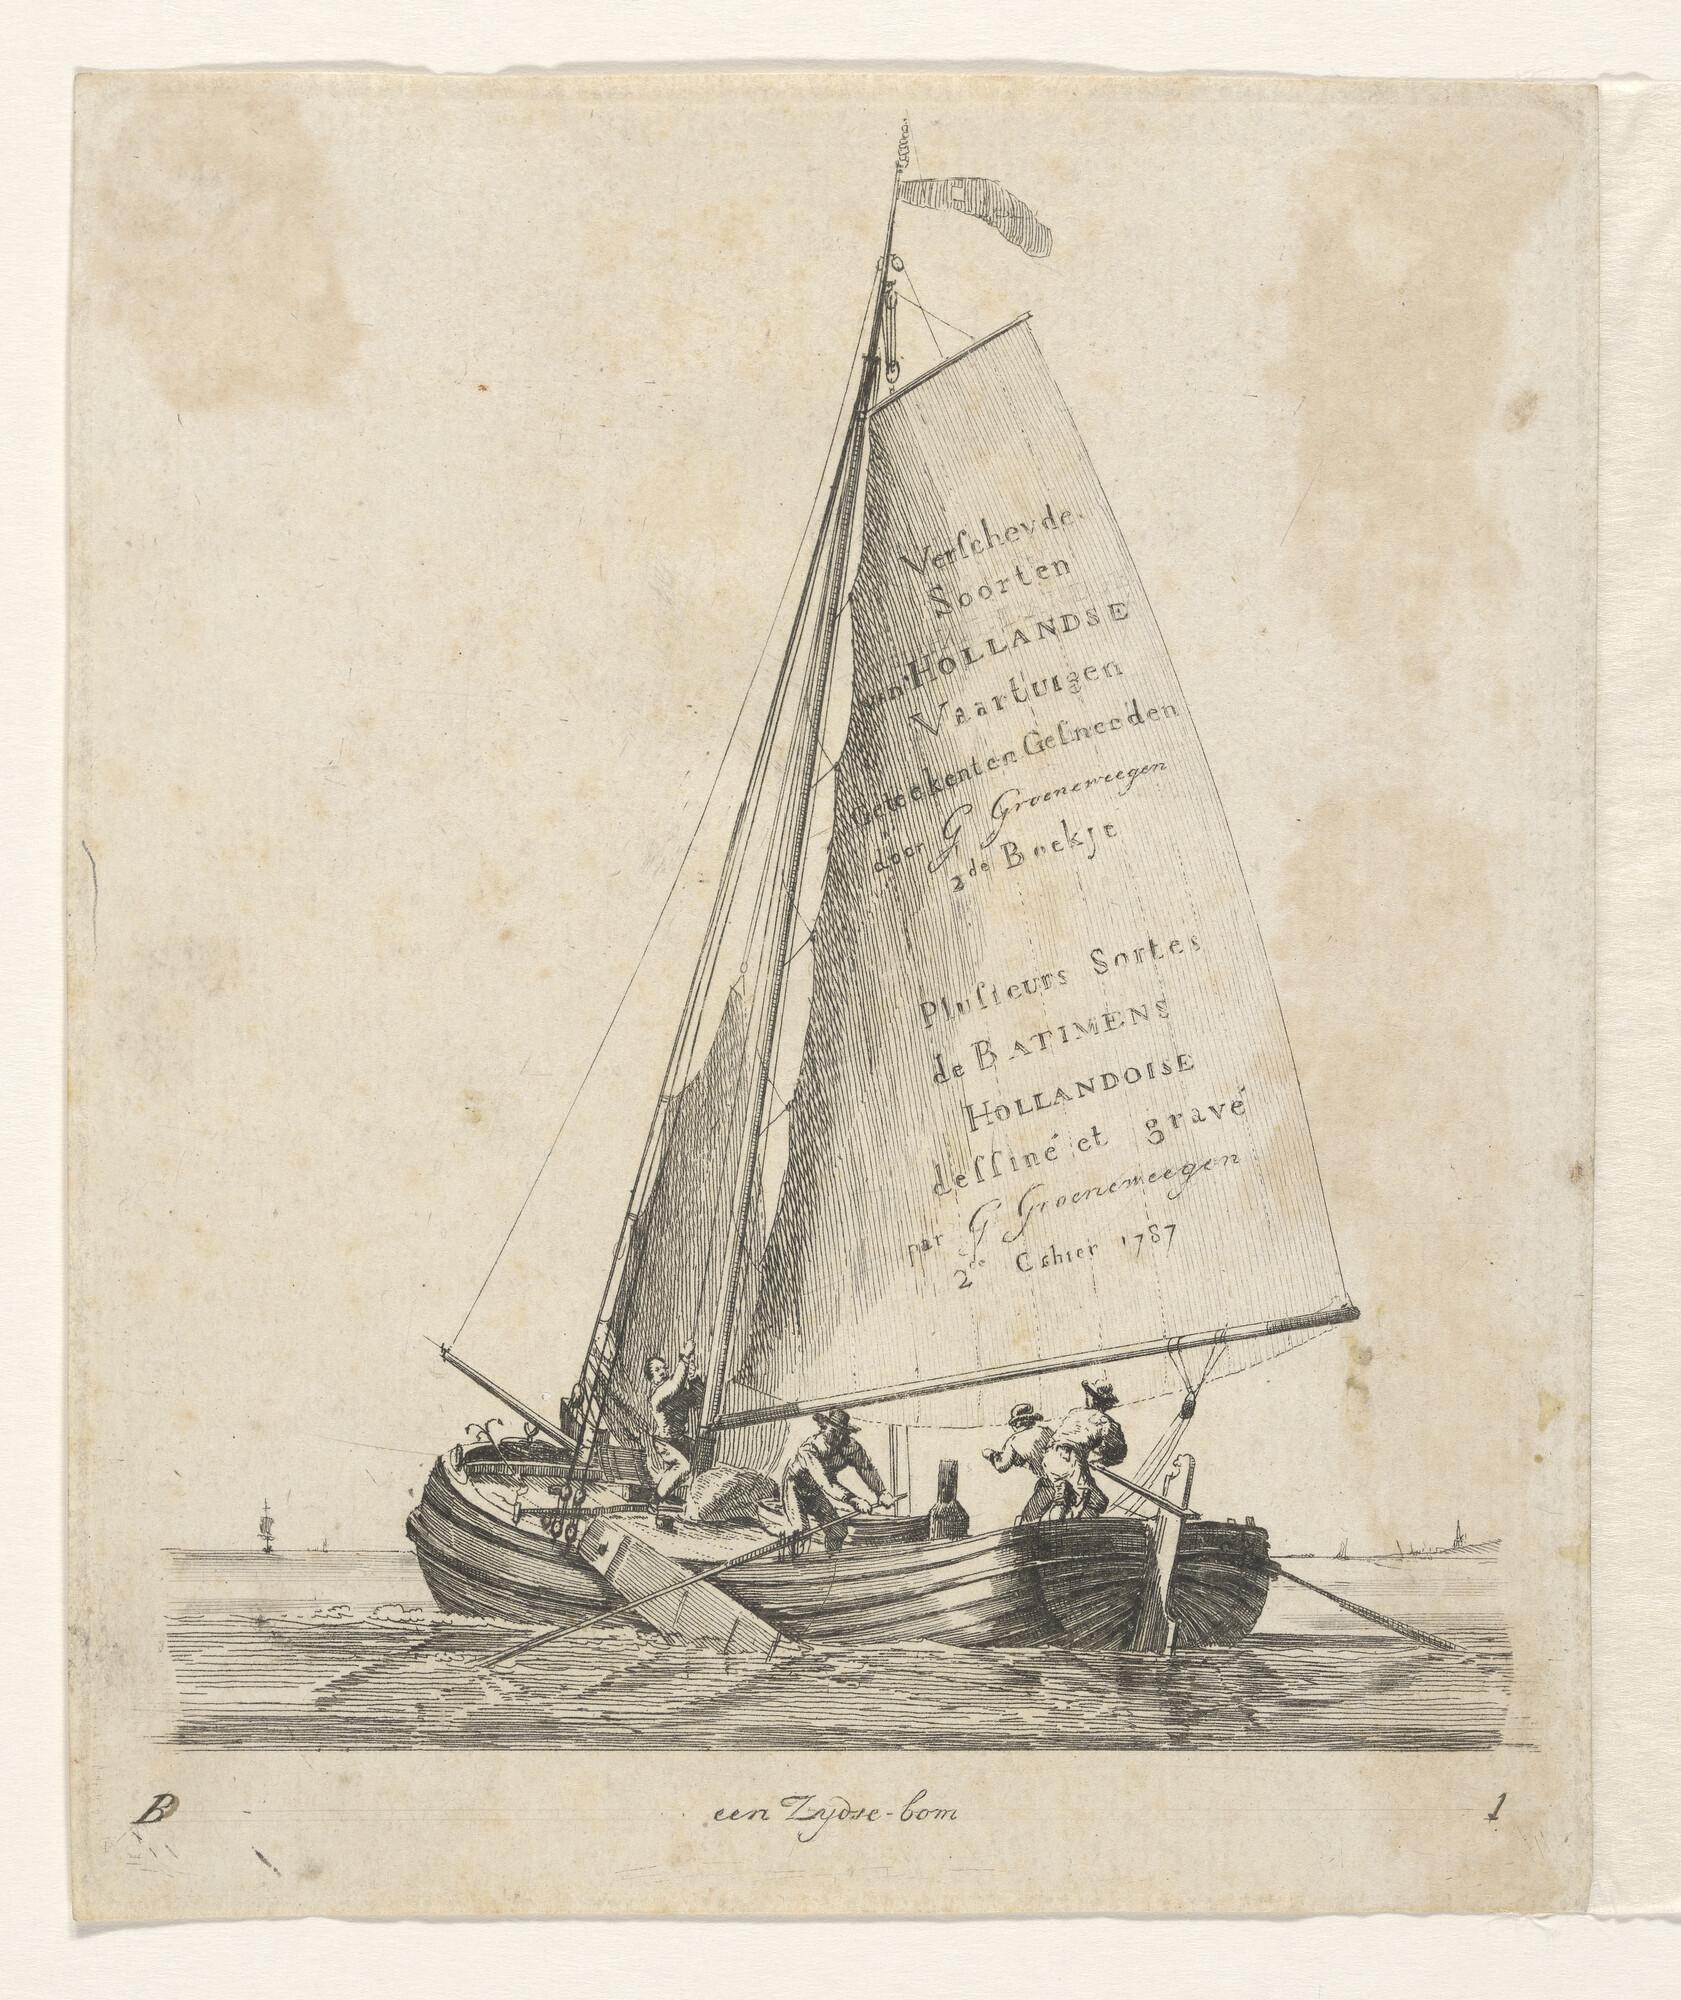 Verſcheyde
Soorten
van HOLLANDSE
Vaartuigen
Geteekent en Geſneeden
door G Groenewegen
2de Boekje
Pluſieurs Sortes
de BATIMENS
HOLLANDOISE
deſſiné et gravé
par G Groeneweegen
2de Cahier 1787
B
een Zydse-bom
1